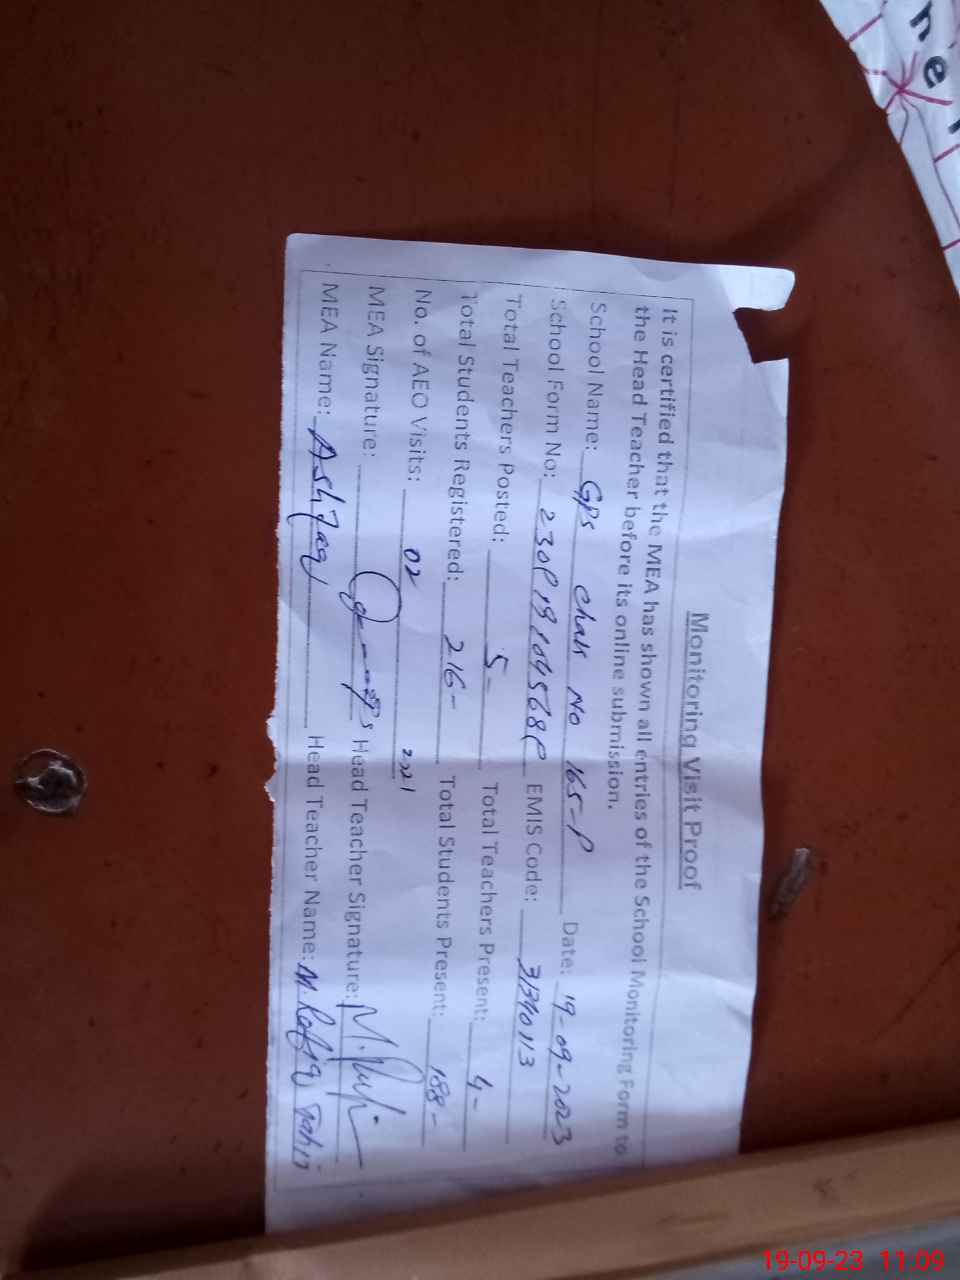 Monitoring Visit Proof
It is certified that the MEA has shown all entries of the School Monitoring Form to
the Head Teacher before its online submission.
School Name: GPS Chak No 165-P Date: 19-09-2023
School Form No: EMIS Code: 31340113
Total Teachers Posted: 5- Total Teachers Present: 4-
Total Students Registered: 216- Total Students Present: 188-
No. of AEO Visits: 02
MEA Signature: Head Teacher Signature:
MEA Name: Ashfaq Head Teacher Name: M. Rafiq Tahir
he
19-09-23 11:09